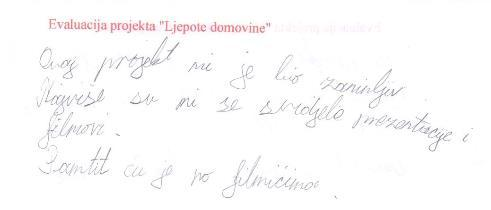 Evaluacija projekta "Ljepote domovine"
Ovaj projekt mi je bio zanimljiv
Najviše su mi se svidjele prezentacije i
filmovi.
Pamtit ću je po filmićima.